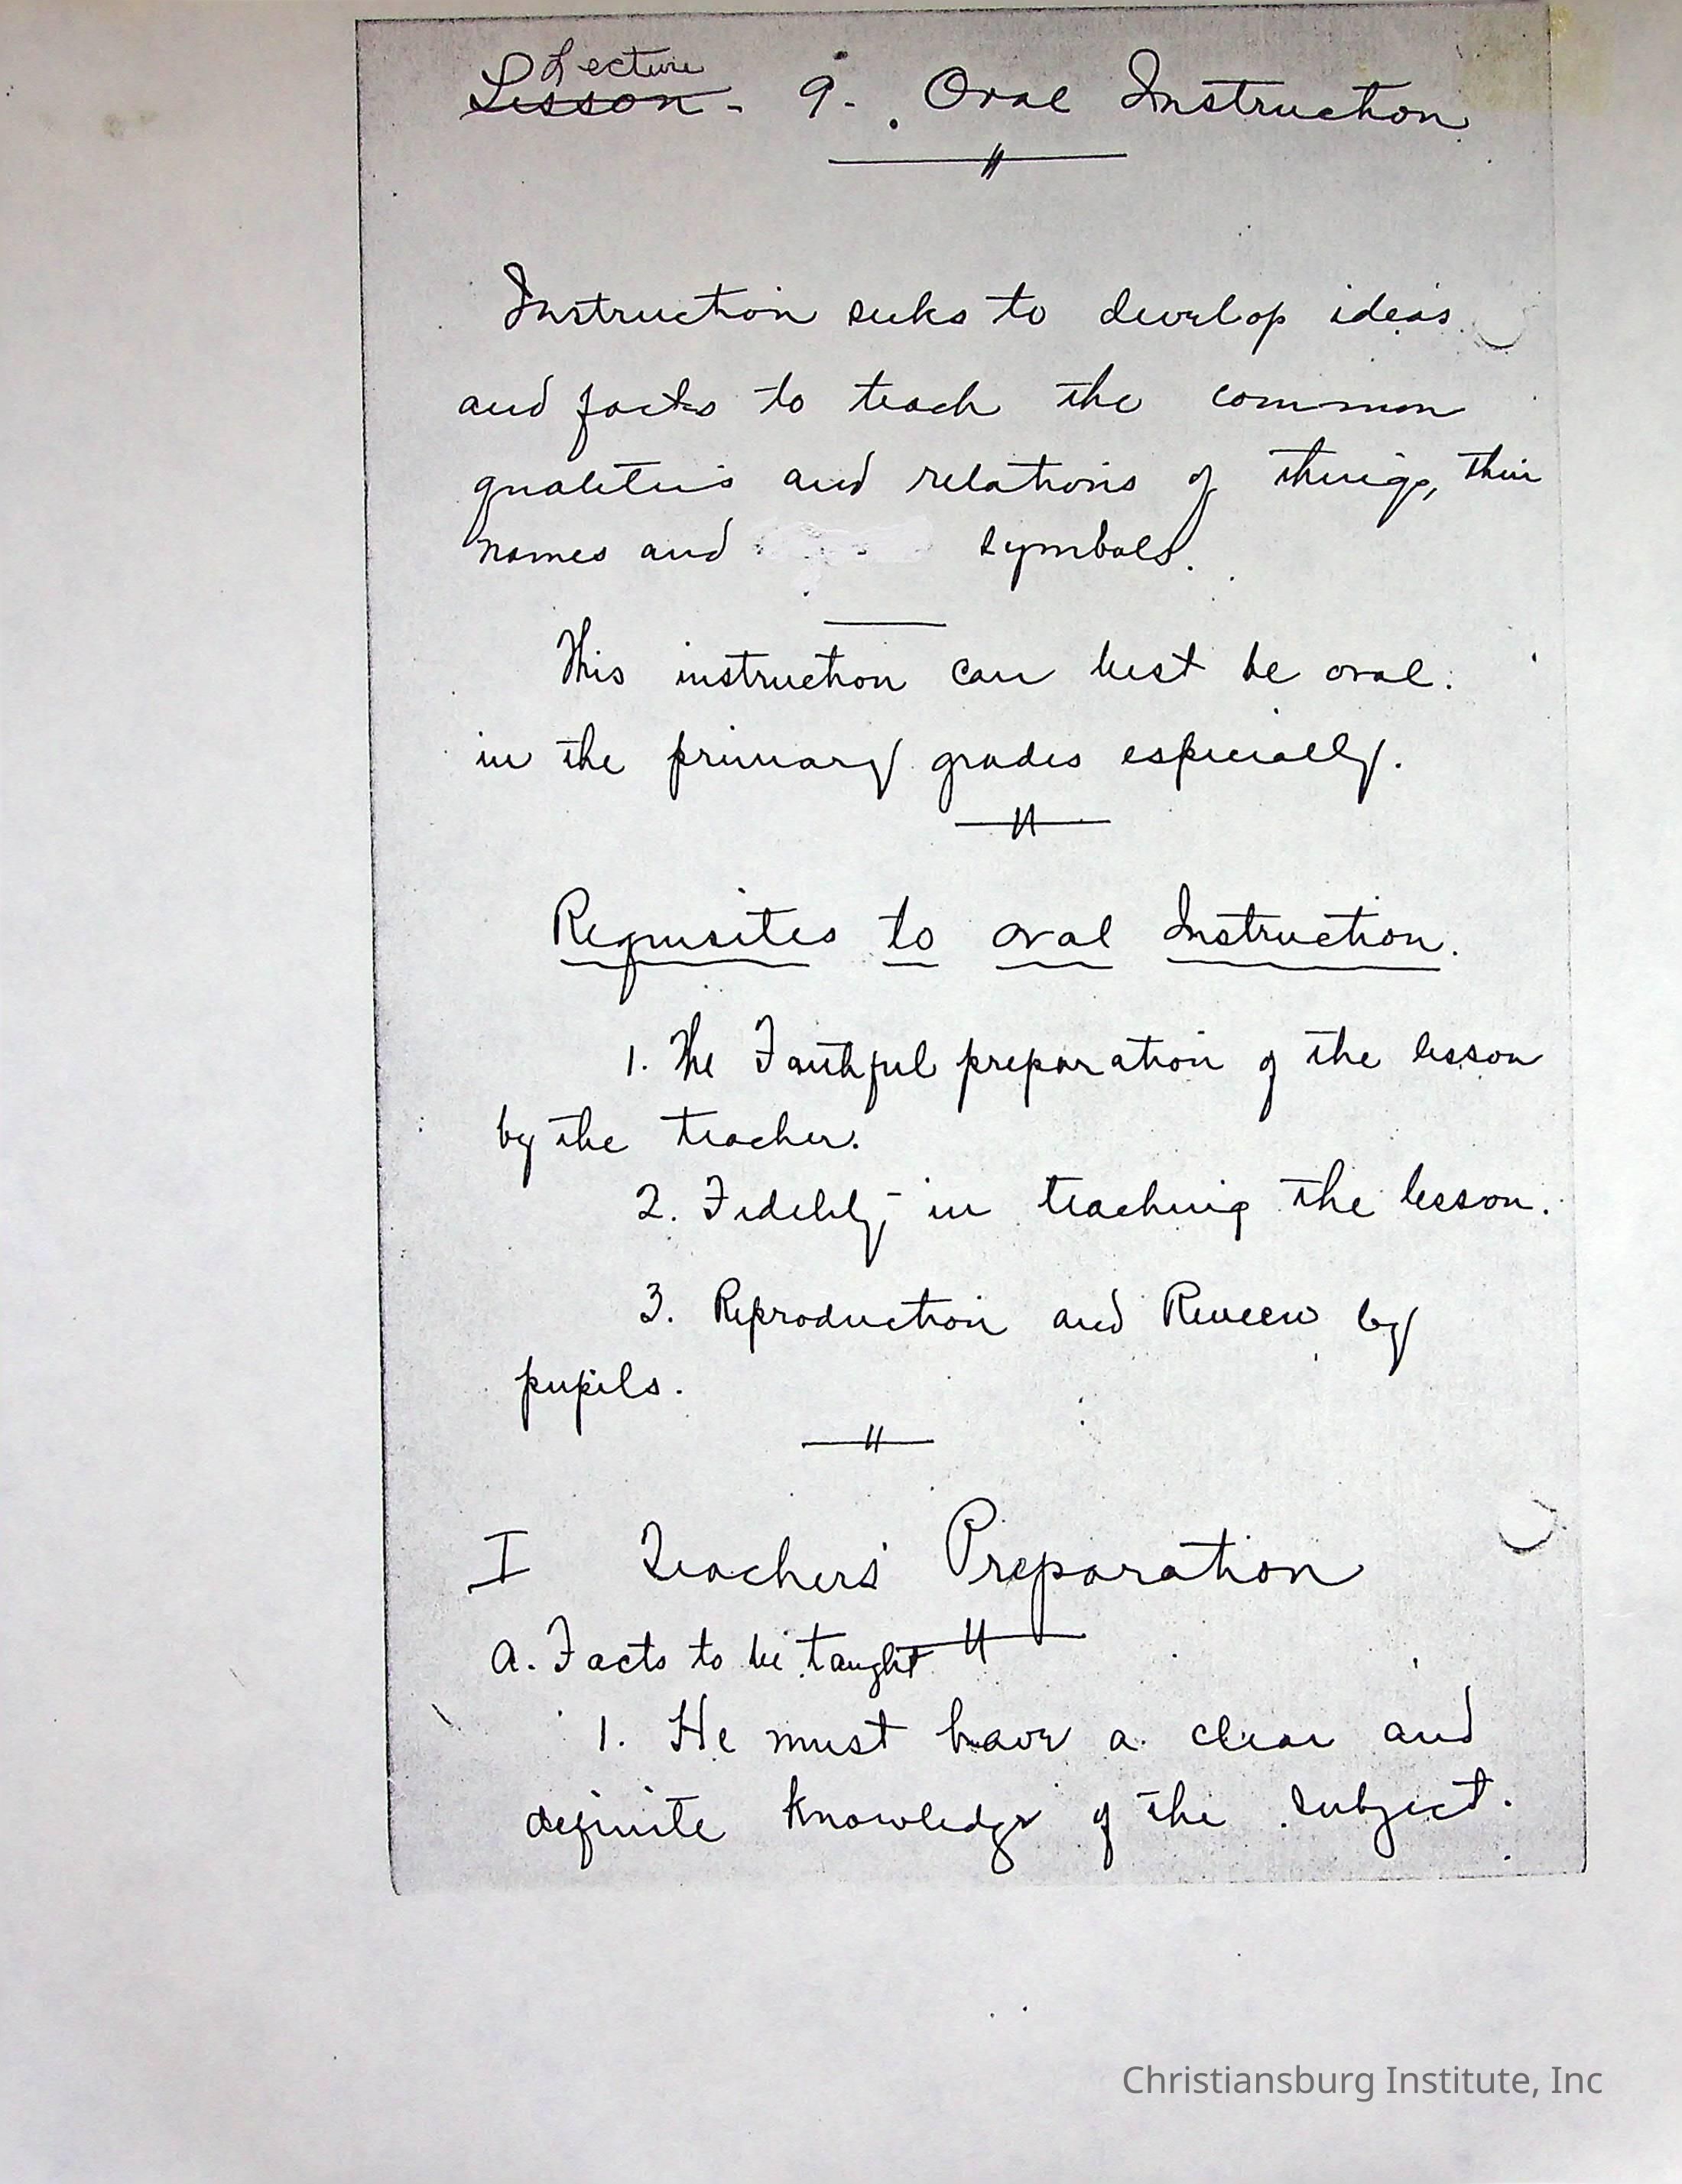 Lecture
Lesson - 9. Oral Instruction
Instruction seeks to develop ideas
and facts to teach the common
qualities and relations of things, their
names and symbols.
This instruction can best be oral.
in the primary grades especially.
Requisites to oral Instruction.
1. The Faithful preparation of the lesson
by the teacher.
2. Fidelity in teaching the lesson.
3. Reproduction and Review by
pupils.
I Teachers' Preparation
a. Facts to be taught
1. He must have a clear and
definite knowledge of the subject.
Christiansburg Institute, Inc